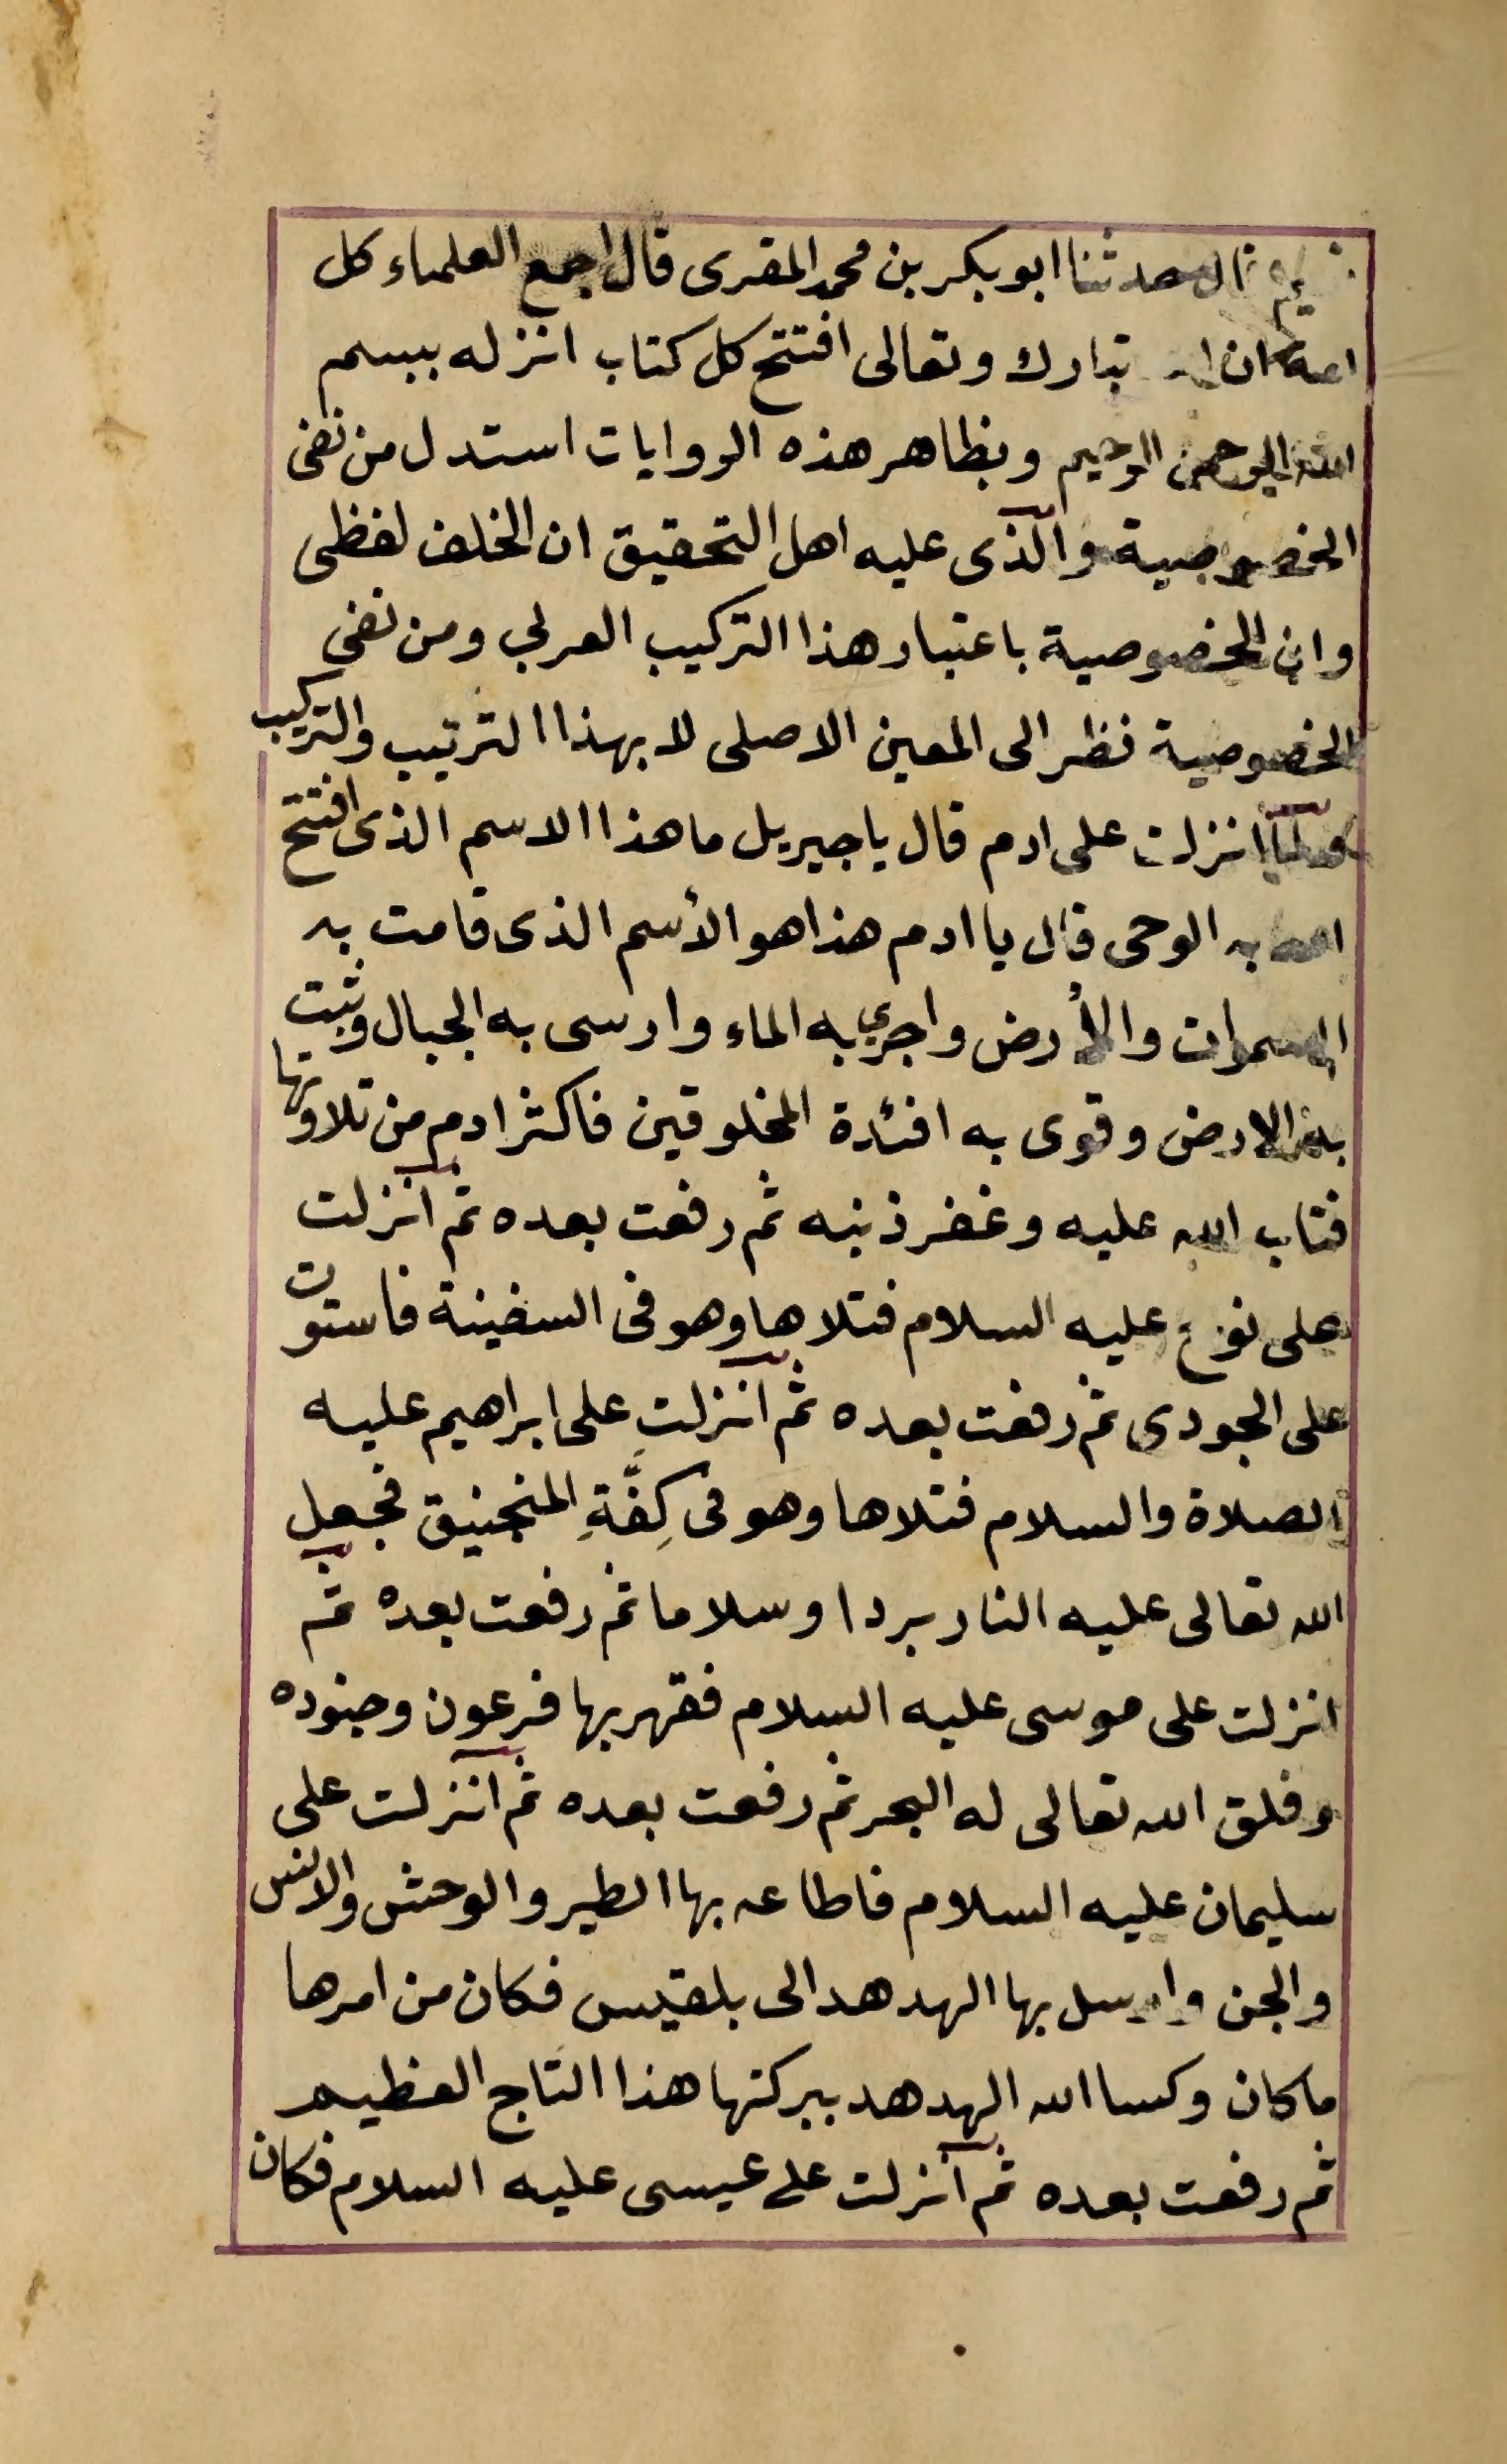 قال حدثنا ابو بكر بن محمد المقرى قال اجمع العلماء كل
امة ان الله تبارك وتعالى افتتح كل كتاب انزله ببسم
الله الرحمن الرحيم وبظاهر هذه الروايات استدل من نفى
الخصوصية والذى عليه اهل التحقيق ان الخلف لفظى
وان الخصوصية باعتبار هذا التركيب العربي ومن نفى
الخصوصية نظر الى المعين الاصلى لا بهذا الترتيب والتركيب
ولما انزلت على ادم قال يا جبريل ما هذا الاسم الذى افتتح
الله به الوحى قال يا ادم هذا هو الأسم الذى قامت به
السموات والأرض واجري به الماء وارسى به الجبال وثبت
به الارض وقوى به افئدة المخلوقين فاكثر ادم من تلاوتها
فتاب الله عليه وغفر ذنبه ثم رفعت بعده ثم انزلت
على نوح عليه السلام فتلاها وهو فى السفينة فاستوت
على الجودى ثم رفعت بعده ثم انزلت على ابراهيم عليه
الصلاة والسلام فتلاها وهو فى كِفَّةِ المنجنيق فجعل
الله تعالى عليه النار بردا وسلاما ثم رفعت بعده ثم
انزلت على موسى عليه السلام فقهر بها فرعون وجنوده
وفلق الله تعالى له البحر ثم رفعت بعده ثم انزلت على
سليمان عليه السلام فاطاعه بها الطير والوحش والانس
والجن وارسل بها الهدهد الى بلقيس فكان من امرها
ما كان وكسا الله الهدهد ببركتها هذا التاج العظيم
ثم رفعت بعده ثم انزلت على عيسى عليه السلام فكان